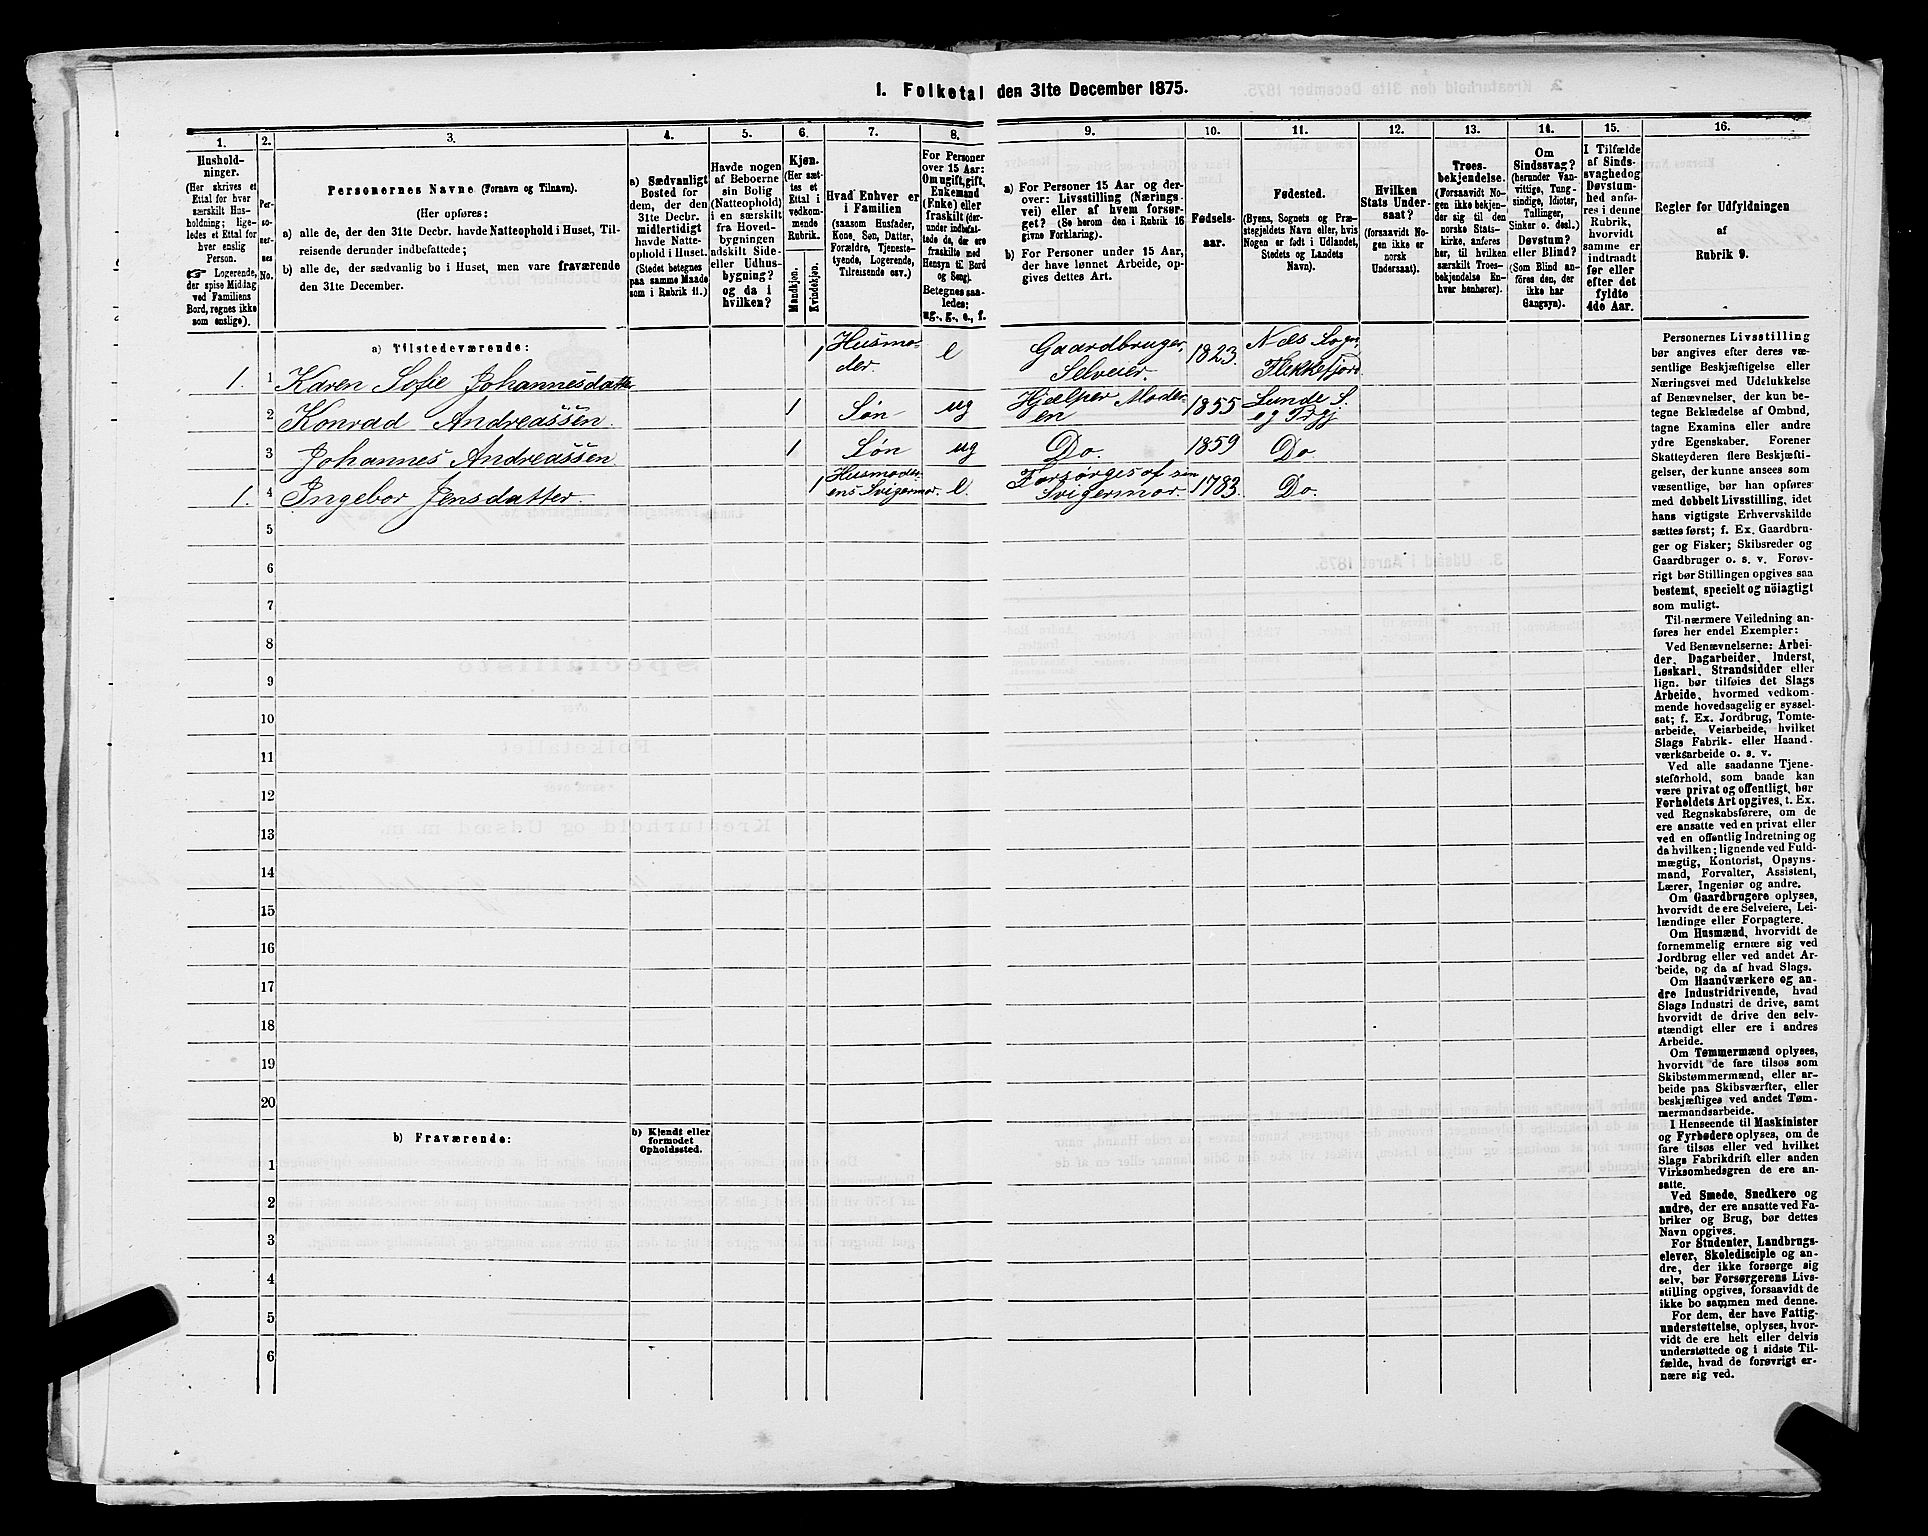 1. Folketal den 31te December 1875.
1.
2.
3.
4.
5.
6.
7.
8.
9.
10.
11.
12.
13.
14.
15.
16.
Hushold-
ninger.
(Her skrives et
Ettal for hver
særskilt Hus-
holdning; lige-
ledes et Ettal for
hver enslig
Person.
☞ Logerende,
der spise Middag
ved Familiens
Bord, regnes ikke
som enslige).
Per-
so-
ner-
nes
No.
Personernes Navne (Fornavn og Tilnavn).
(Her opføres:
a) alle de, der den 31te Decbr. havde Natteophold i Huset, Til-
reisende derunder indbefattede;
b) alle de, der sædvanlig bo i Huset, men vare fraværende
den 31te December.
a) Sædvanligt
Bosted for
dem, der den
31te Decbr.
midlertidigt
havde Natte-
ophold i Huset.
(Stedet betegnes
paa samme Maade
som i Rubrik 11.)
Havde nogen
af Beboerne
sin Bolig
(Natteophold)
i en særskilt
fra Hoved-
bygningen
adskilt Side-
eller Udhus-
bygning?
og da i
hvilken?
Kjøn.
(Her sæt-
tes et
Ettal i
vedkom-
mende
Rubrik.
Mandkjøn.
Kvindekjøn.
Hvad Enhver er
i Familien
(saasom Husfader,
Kone, Søn, Datter,
Forældre, Tjeneste-
tyende, Logerende,
Tilreisende osv.)
For Personer
over 15 Aar:
Om ugift, gift,
Enkemand
(Enke) eller
fraskilt (der-
under indbefat-
tede de, der ere
fraskilte med
Hensyn til Bord
og Seng).
Betegnes saa-
ledes:
ug., g., e., f.
a) For Personer 15 Aar og der-
over: Livsstilling (Nærings-
vei) eller af hvem forsør-
get? (Se herom den i Rubrik 16
givne Forklaring).
b) For Personer under 15 Aar,
der have lønnet Arbeide, op-
gives dettes Art.
Fødsels-
aar.
Fødested.
(Byens, Sognets og Præ-
stegjeldets Navn eller, hvis
Nogen er født i Udlandet,
Stedets og Landets
Navn).
Hvilken
Stats Under-
saat?
(forsaavidt No-
gen ikke er
norsk
Undersaat).
Troes-
bekjendelse.
(Forsaavidt No-
gen ikke bekjen-
der sig til den
norske Stats-
kirke, anføres
her, til hvilken
særskilt Troes-
bekjendelse En-
hver henhører).
Om
Sindssvag?
(herunder Van-
vittige, Tung-
sindige, Idioter,
Tullinger,
Sinker o. desl.)
Døvstum?
eller Blind?
(Som Blind an-
føres den, der
ikke har
Gangsyn).
I Tilfælde
af Sinds-
svaghed og
Døvstum-
hed anfø-
res i denne
Rubrik,
hvorvidt
samme er
indtraadt
før eller
efter det
fyldte
4de Aar.
Regler for Udfyldningen
af
Rubrik 9.
a) Tilstedeværende:
1. 1 Karen Sofie Johannesdatter 1 Husmo-
der. e Gaardbruger,
Selveier. 1823 Næs Sogn
Flekkefjord
2 Konrad Andreassen. 1 Søn ug Hjælper Moder-
en 1855 Lunde S.
og Prgj
3 Johannes Andreassen 1 Søn ug Do. 1859 Do
1. 4 Ingebor Jensdatter. 1 Husmoder-
ens Svigermor. e. Forsørges af sin
Svigermor. 1783. Do.
5
6
7
8
9
10
11
12
13
14
15
16
17
18
19
20
b) Fraværende:
b) Kjendt eller
formodet
Opholdssted.
1
2
3
4
5
6
Personernes Livsstilling
bør angives efter deres væ-
sentlige Beskjæftigelse eller
Næringsvei med Udelukkelse
af Benævnelser, der kun be-
tegne Beklædelse af Ombud,
tagne Examina eller andre
ydre Egenskaber. Forener
Skatteyderen flere Beskjæfti-
gelser, der kunne ansees som
væsentlige, bør han opføres
med dobbelt Livsstilling, idet
hans vigtigste Erhvervskilde
sættes først; f. Ex. Gaardbru-
ger og Fisker; Skibsreder og
Gaardbruger o. s. v. Forøv-
rigt bør Stillingen opgives saa
bestemt, specielt og nöiagtigt
som muligt.
Til nærmere Veiledning an-
føres her endel Exempler:
Ved Benævnelserne: Arbei-
der, Dagarbeider, Inderst,
Løskarl, Strandsidder eller
lign. bør tilføies det Slags
Arbeide, hvormed vedkom-
mende hovedsagelig er syssel-
sat; f. Ex. Jordbrug, Tomte-
arbeide, Veiarbeide, hvilket
Slags Fabrik- eller Haand-
værksarbeide o. s. v.
Ved alle saadanne Tjene-
steforhold, som baade kan
være privat og offentligt, bør
Forholdets Art opgives, t. Ex.
ved Regnskabsførere, om de
ere ansatte ved en privat eller
ved en offentlig Indretning og
da hvilken; lignende ved Fuld-
mægtig, Kontorist, Opsyns-
mand, Forvalter, Assistent,
Lærer, Ingeniør og andre.
Om Gaardbrugere oplyses,
hvorvidt de ere Selveiere, Lei-
lændinge eller Forpagtere.
Om Husmænd, hvorvidt de
fornemmelig ernære sig ved
Jordbrug eller ved andet Ar-
beide, og da af hvad Slags.
Om Haandværkere og an-
dre Industridrivende, hvad
Slags Industri de drive, samt
hvorvidt de drive den selv-
stændigt eller ere i andres
Arbeide.
Om Tømmermænd oplyses,
hvorvidt de fare tilsøs som
Skibstømmermænd, eller ar-
beide paa Skibsværfter, eller
beskjæftiges ved andet Tøm-
mermandsarbeide.
I Henseende til Maskinister
og Fyrbødere oplyses, om de
fare tilsøs eller ved hvilket
Slags Fabrikdrift eller anden
Virksomhedsgren de ere an-
satte.
Ved Smede, Snedkere og
andre, der ere ansatte ved Fa-
briker og Brug, bør dettes
Navn opgives.
For Studenter, Landbrugs-
elever, Skoledisciple og an-
dre, der ikke forsørge sig
selv, bør Forsørgerens Livs-
stilling opgives, forsaavidt de
ikke bo sammen med denne.
For dem, der have Fattig-
understøttelse, oplyses, hvor-
vidt de ere helt eller delvis
understøttede og i sidste Til-
fælde, hvad de forøvrigt er-
nære sig ved.